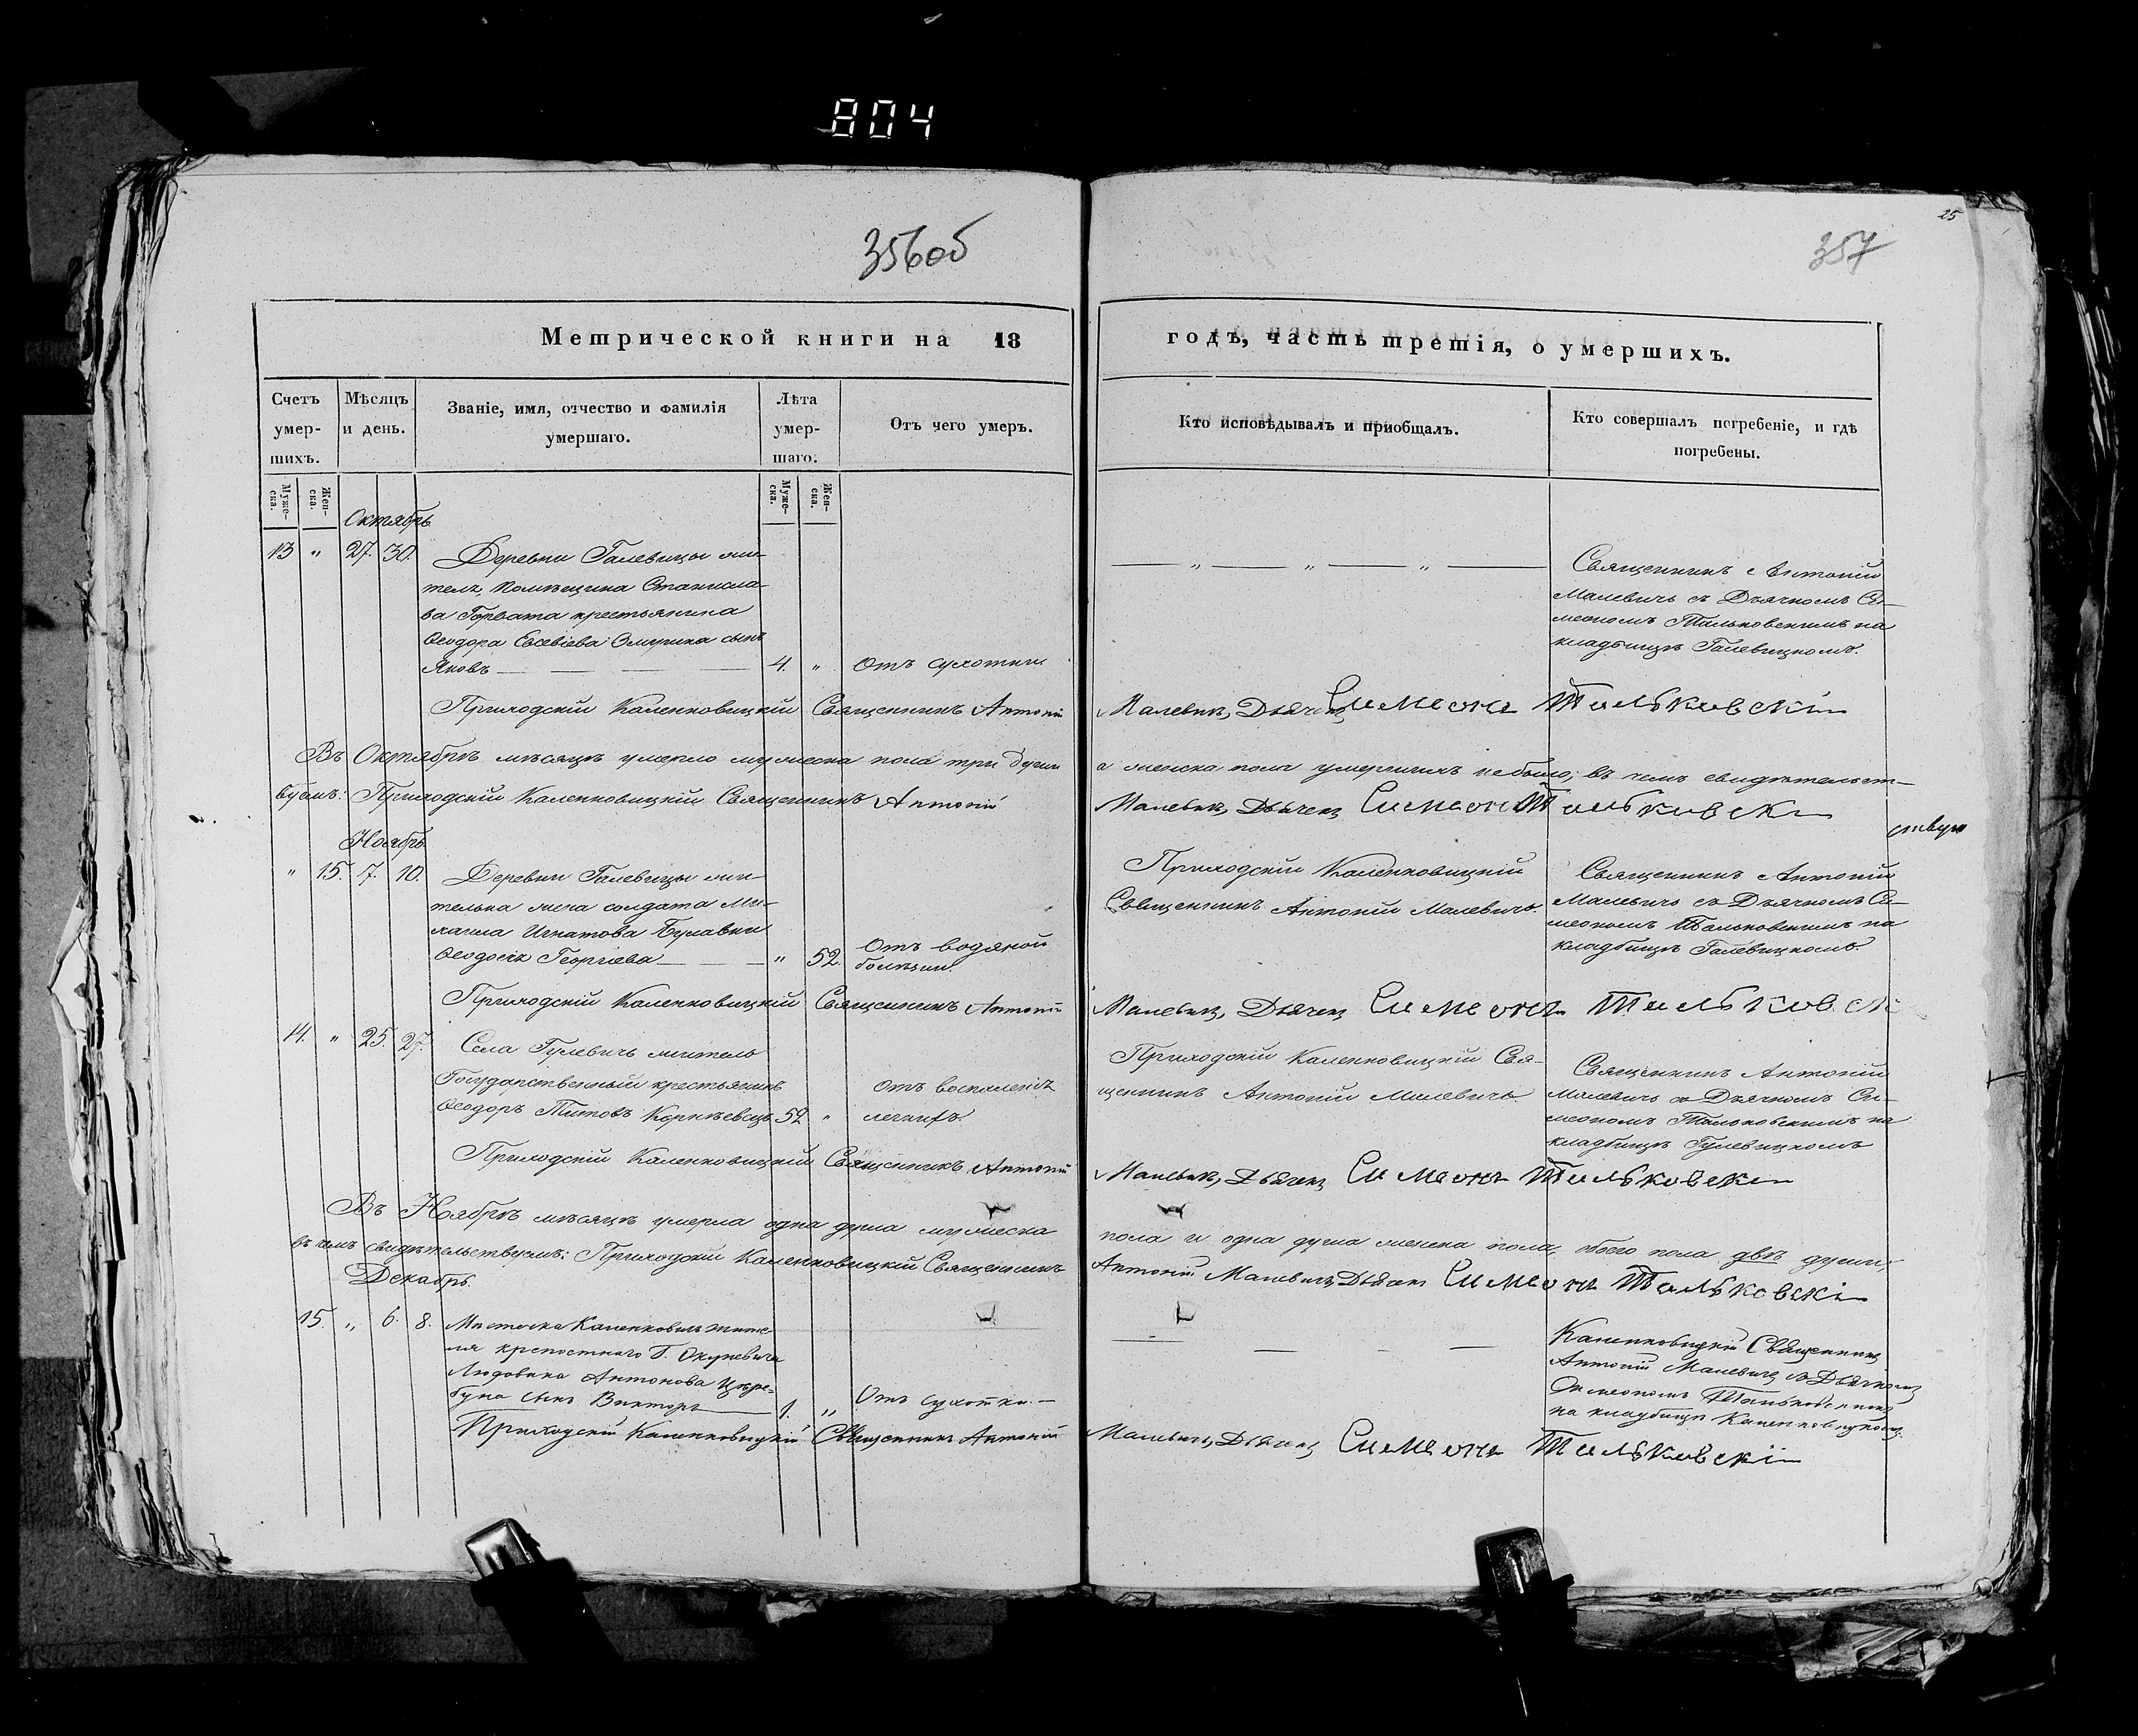 804
356об
25
357
Метрической книги на 18
годъ, часть третія, о умершихъ.
Счетъ умер-шихъ.
Мѣсяцъ и день.
Званіе, имя, отчество и фамилія умершаго.
Лѣта умер-шаго.
Отъ чего умеръ.
Кто исповѣдывалъ и приобщалъ.
Кто совершалъ погребеніе, и гдѣ погребены.
Муже-ска.
Жен-ска.
Муже-ска.
Жен-ска.
Октябрь.
13 " 27. 30. Деревни Галевицы жи-
тель, помѣщика Станисла-
ва Горвата крестьянина
Ѳеодора Евсевіева сынъ
Яковъ 4. " Отъ сухотки
— " — " — " —
Священникъ Антоній
Малевичь съ Дьячкомъ Си-
меономъ Тальковскимъ на
кладбищѣ Галевицкомъ.
Приходскій Каленковицкій Священникъ Антоній
Малевичъ, Дьячекъ Симеонъ Тальковскій
Въ Октябрѣ мѣсяцѣ умерло мужеска пола три души
а женска пола умершихъ небыло; въ чемъ свидѣтельст-
вуемъ: Приходскій Каленковицкій Священникъ Антоній
Малевичъ, Дьячекъ Симеонъ Тальковскій
Ноябрь.
" 15. 7. 10. Деревни Галевицы жи-
телька жена солдата Ми-
хаила Игнатова Булавки
Ѳеодосія Георгіева " 52. Отъ водяной
болѣзни.
Приходскій Каленковицкій
Священникъ Антоній Малевичь.
Священникъ Антоній
Малевичь съ Дьячкомъ Си-
меономъ Тальковскимъ на
кладбищѣ Галевицкомъ.
Приходскій Каленковицкій Священникъ Антоній
Малевичъ, Дьячекъ Симеонъ Тальковскі
14. " 25. 27. Села Гулевичь житель
Государственный крестьянинъ
Ѳеодоръ Титовъ Корнѣевецъ 52 "
отъ воспаленія
легкихъ.
Приходскій Каленковицкій Свя-
щенникъ Антоній Малевичь.
Священникъ Антоній
Малевичь съ Дьячкомъ Си-
меономъ Тальковскимъ на
кладбищѣ Гулевицкомъ
Приходскій Каленковицкій Священникъ Антоній
Малевичъ, Дьячекъ Симеонъ Тальковскій
Въ Ноябрѣ мѣсяцѣ умерла одна душа мужеска
пола и одна душа женска пола, обоего пола двѣ души;
въ чемъ свидѣтельствуемъ: Приходскій Каленковицкій Священникъ
Антоній Малевичъ, Дьячекъ Симеонъ Тальковскій
Декабрь.
15. " 6. 8. Мѣстечка Каленковичъ жите-
ля крепостнаго Г. Окулевича
Людвика Антонова
сынъ Викторъ 1. " Отъ сухотки.
Каленковицкій Священникъ
Антоній Малевичъ съ Дьячкомъ
Симеономъ Тальковскимъ
на кладбищѣ Каленковицкомъ.
Приходскій Каленковицкій Священникъ Антоній
Малевичъ, Дьячекъ Симеонъ Тальковскій